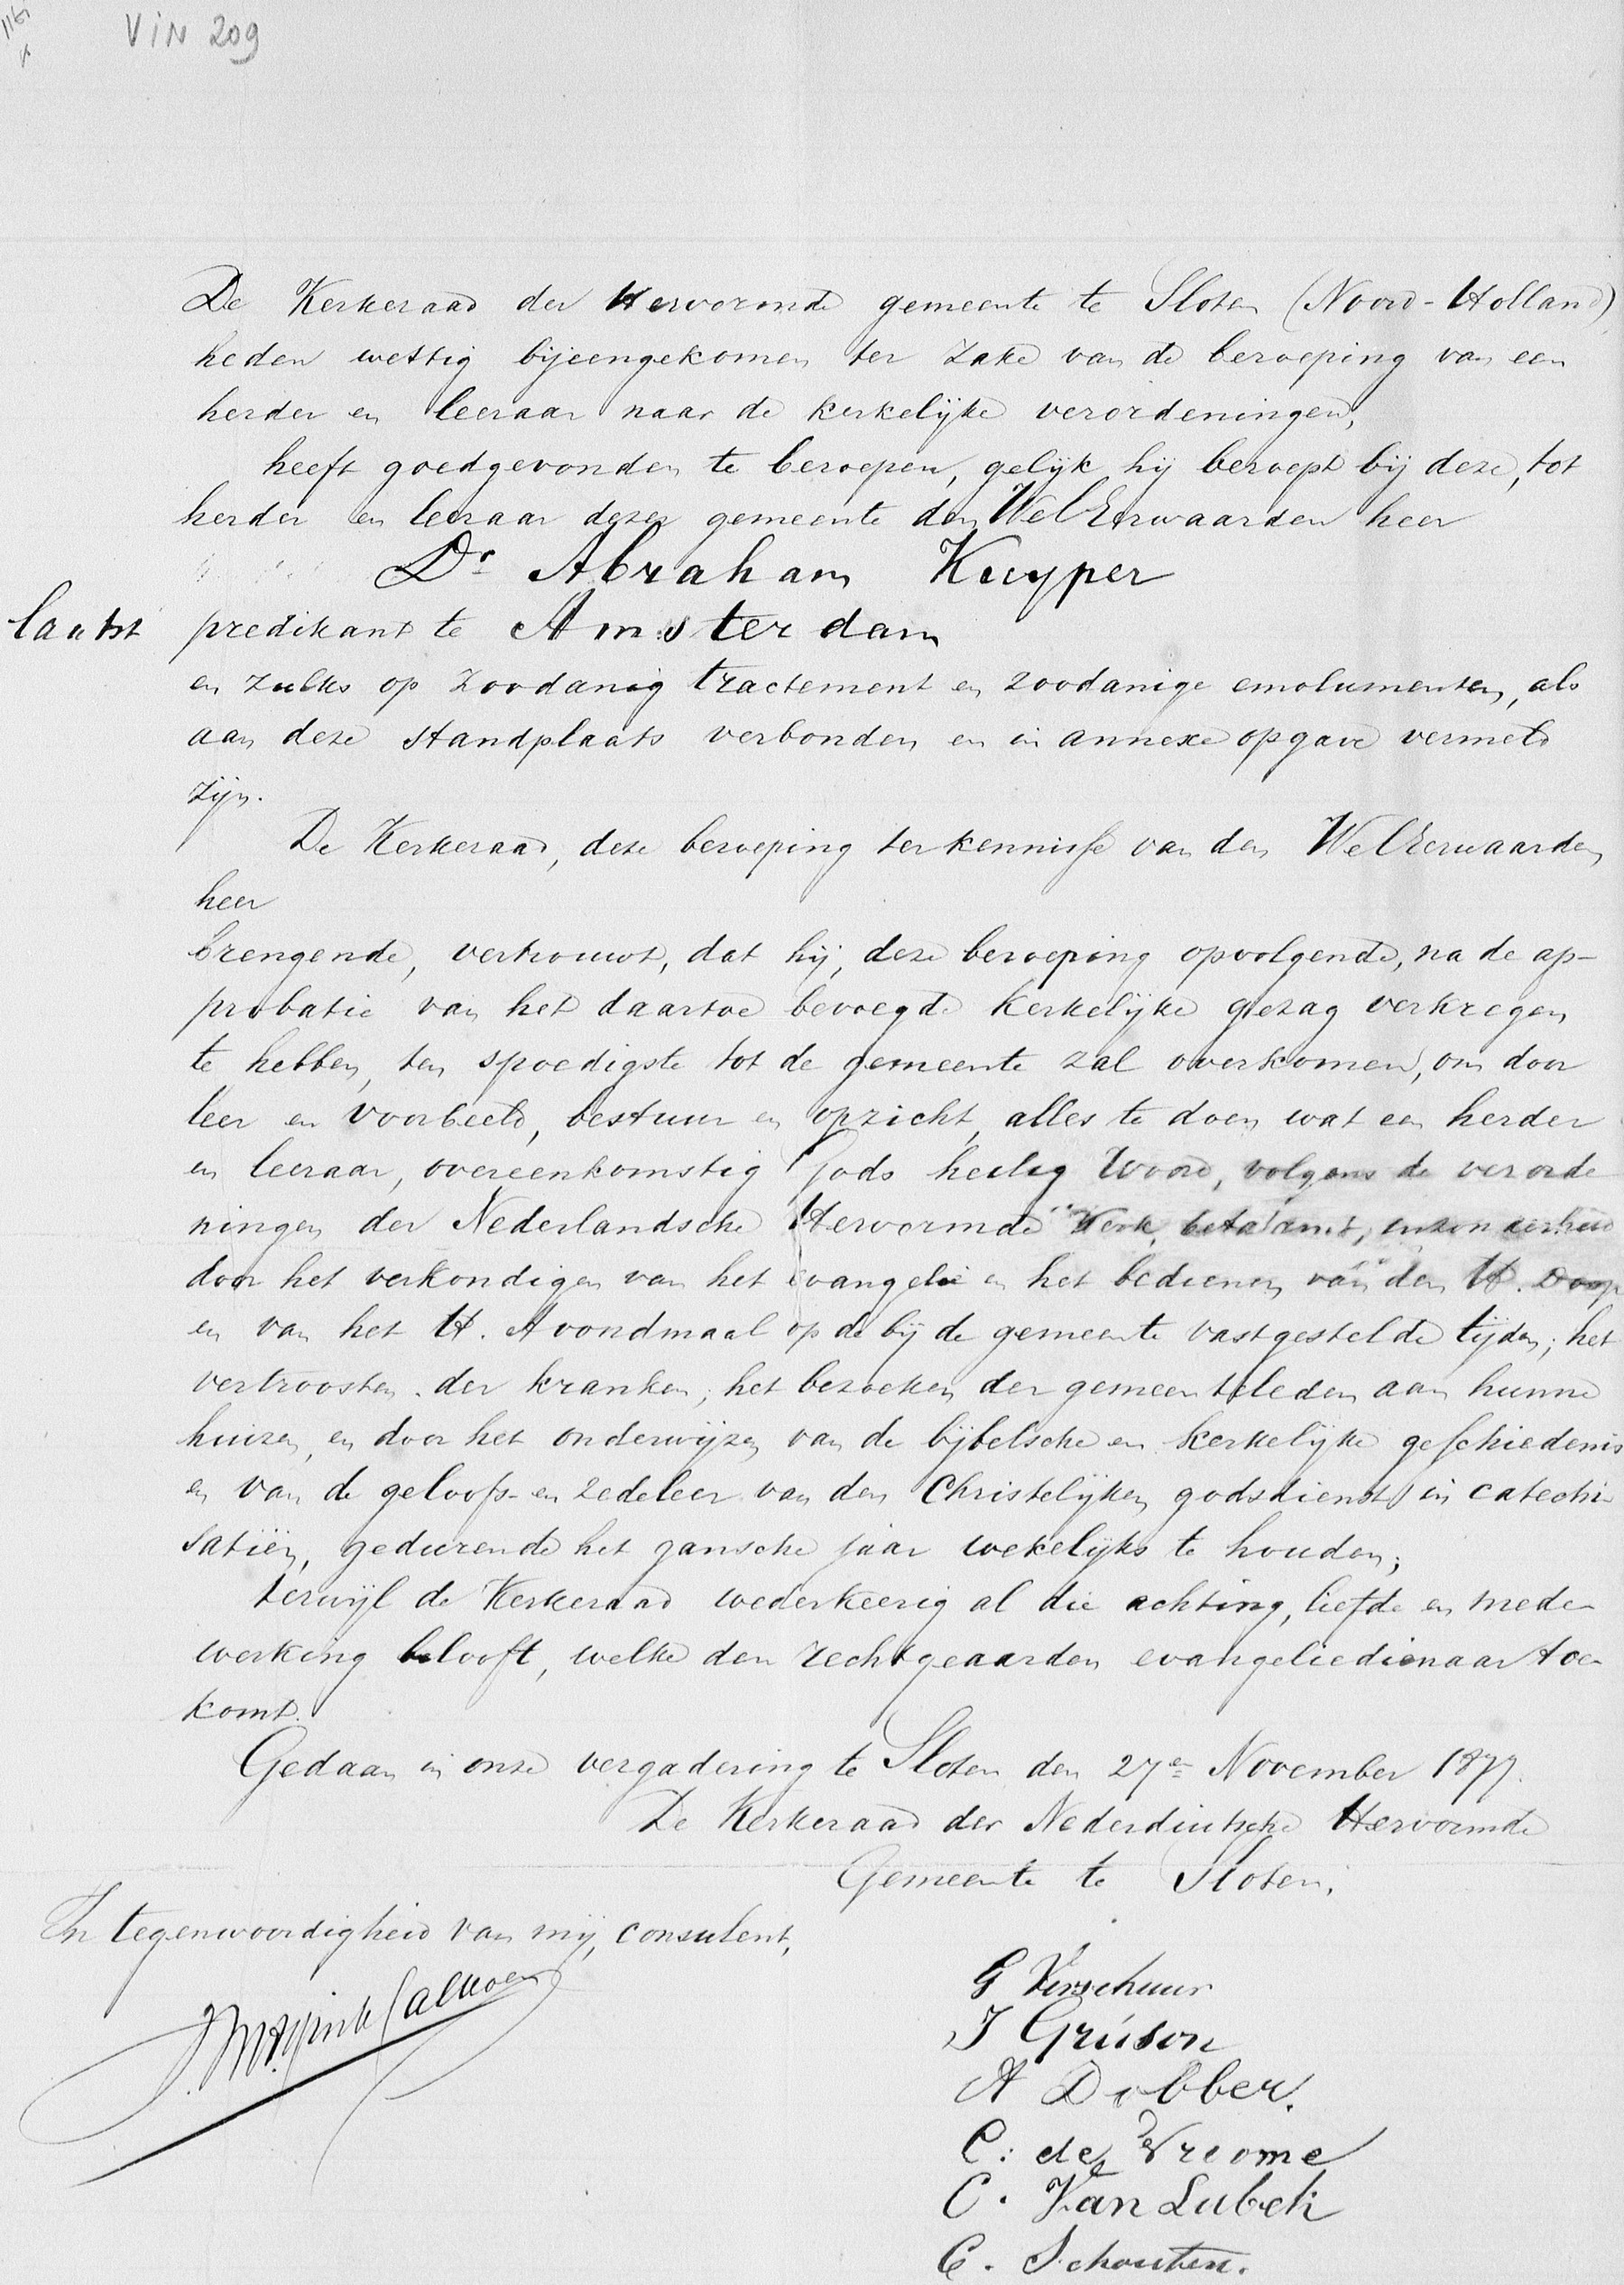 VIN 209
De Kerkeraad der Hervormde gemeente te Sloten (Noord-Holland)
heden wettig bijeengekomen ter zake van de beroeping van een
herder en leeraar naar de kerkelijke verordeningen,
heeft goedgevonden te beroepen, gelijk hij beroept bij deze, tot
herder en leeraar dezer gemeente den WelEerwaarden heer
Dr. Abraham Kuyper
laatst predikant te Amsterdam
en zulks op zoodanig tractement en zoodanige emolumenten, als
aan deze standplaats verbonden en in annexe opgave vermeld
zijn.
De Kerkeraad, deze beroeping ter kennisse van den WelEerwaarden
heer
brengende, vertrouwt, dat hij, deze beroeping opvolgende, na de ap-
probatie van het daartoe bevoegde kerkelijke gezag verkregen
te hebben, ten spoedigste tot de gemeente zal overkomen, om door
leer en voorbeeld, bestuur en opzicht, alles te doen wat een herder
en leeraar, overeenkomstig Gods heilig Woord, volgens de verorde
ningen der Nederlandsche Hervormde Kerk, betaamt, inzonderheid
door het verkondigen van het evangelie en het bedienen van den H. Doop
en van het H. Avondmaal op de bij de gemeente vastgestelde tijden; het
vertroosten der kranken; het bezoeken der gemeenteleden aan hunne
huizen, en door het onderwijzen van de bijbelsche en kerkelijke geschiedenis
en van de geloofs- en zedeleer van den Christelijken godsdienst in catechi-
satiën, gedurende het gansche jaar wekelijks te houden;
terwijl de Kerkeraad wederkeerig al die achting, liefde en mede-
werking belooft, welke den rechtgeaarden evangeliedienaar toe-
komt.
Gedaan in onze vergadering te Sloten den 27en November 1877.
De Kerkeraad der Nederduitsche Hervormde
Gemeente te Sloten,
In tegenwoordigheid van mij, consulent,
G Verschuur
J Gruson
A Dobber.
C. de Vroome
C. Van Lubek
C. Schouten.